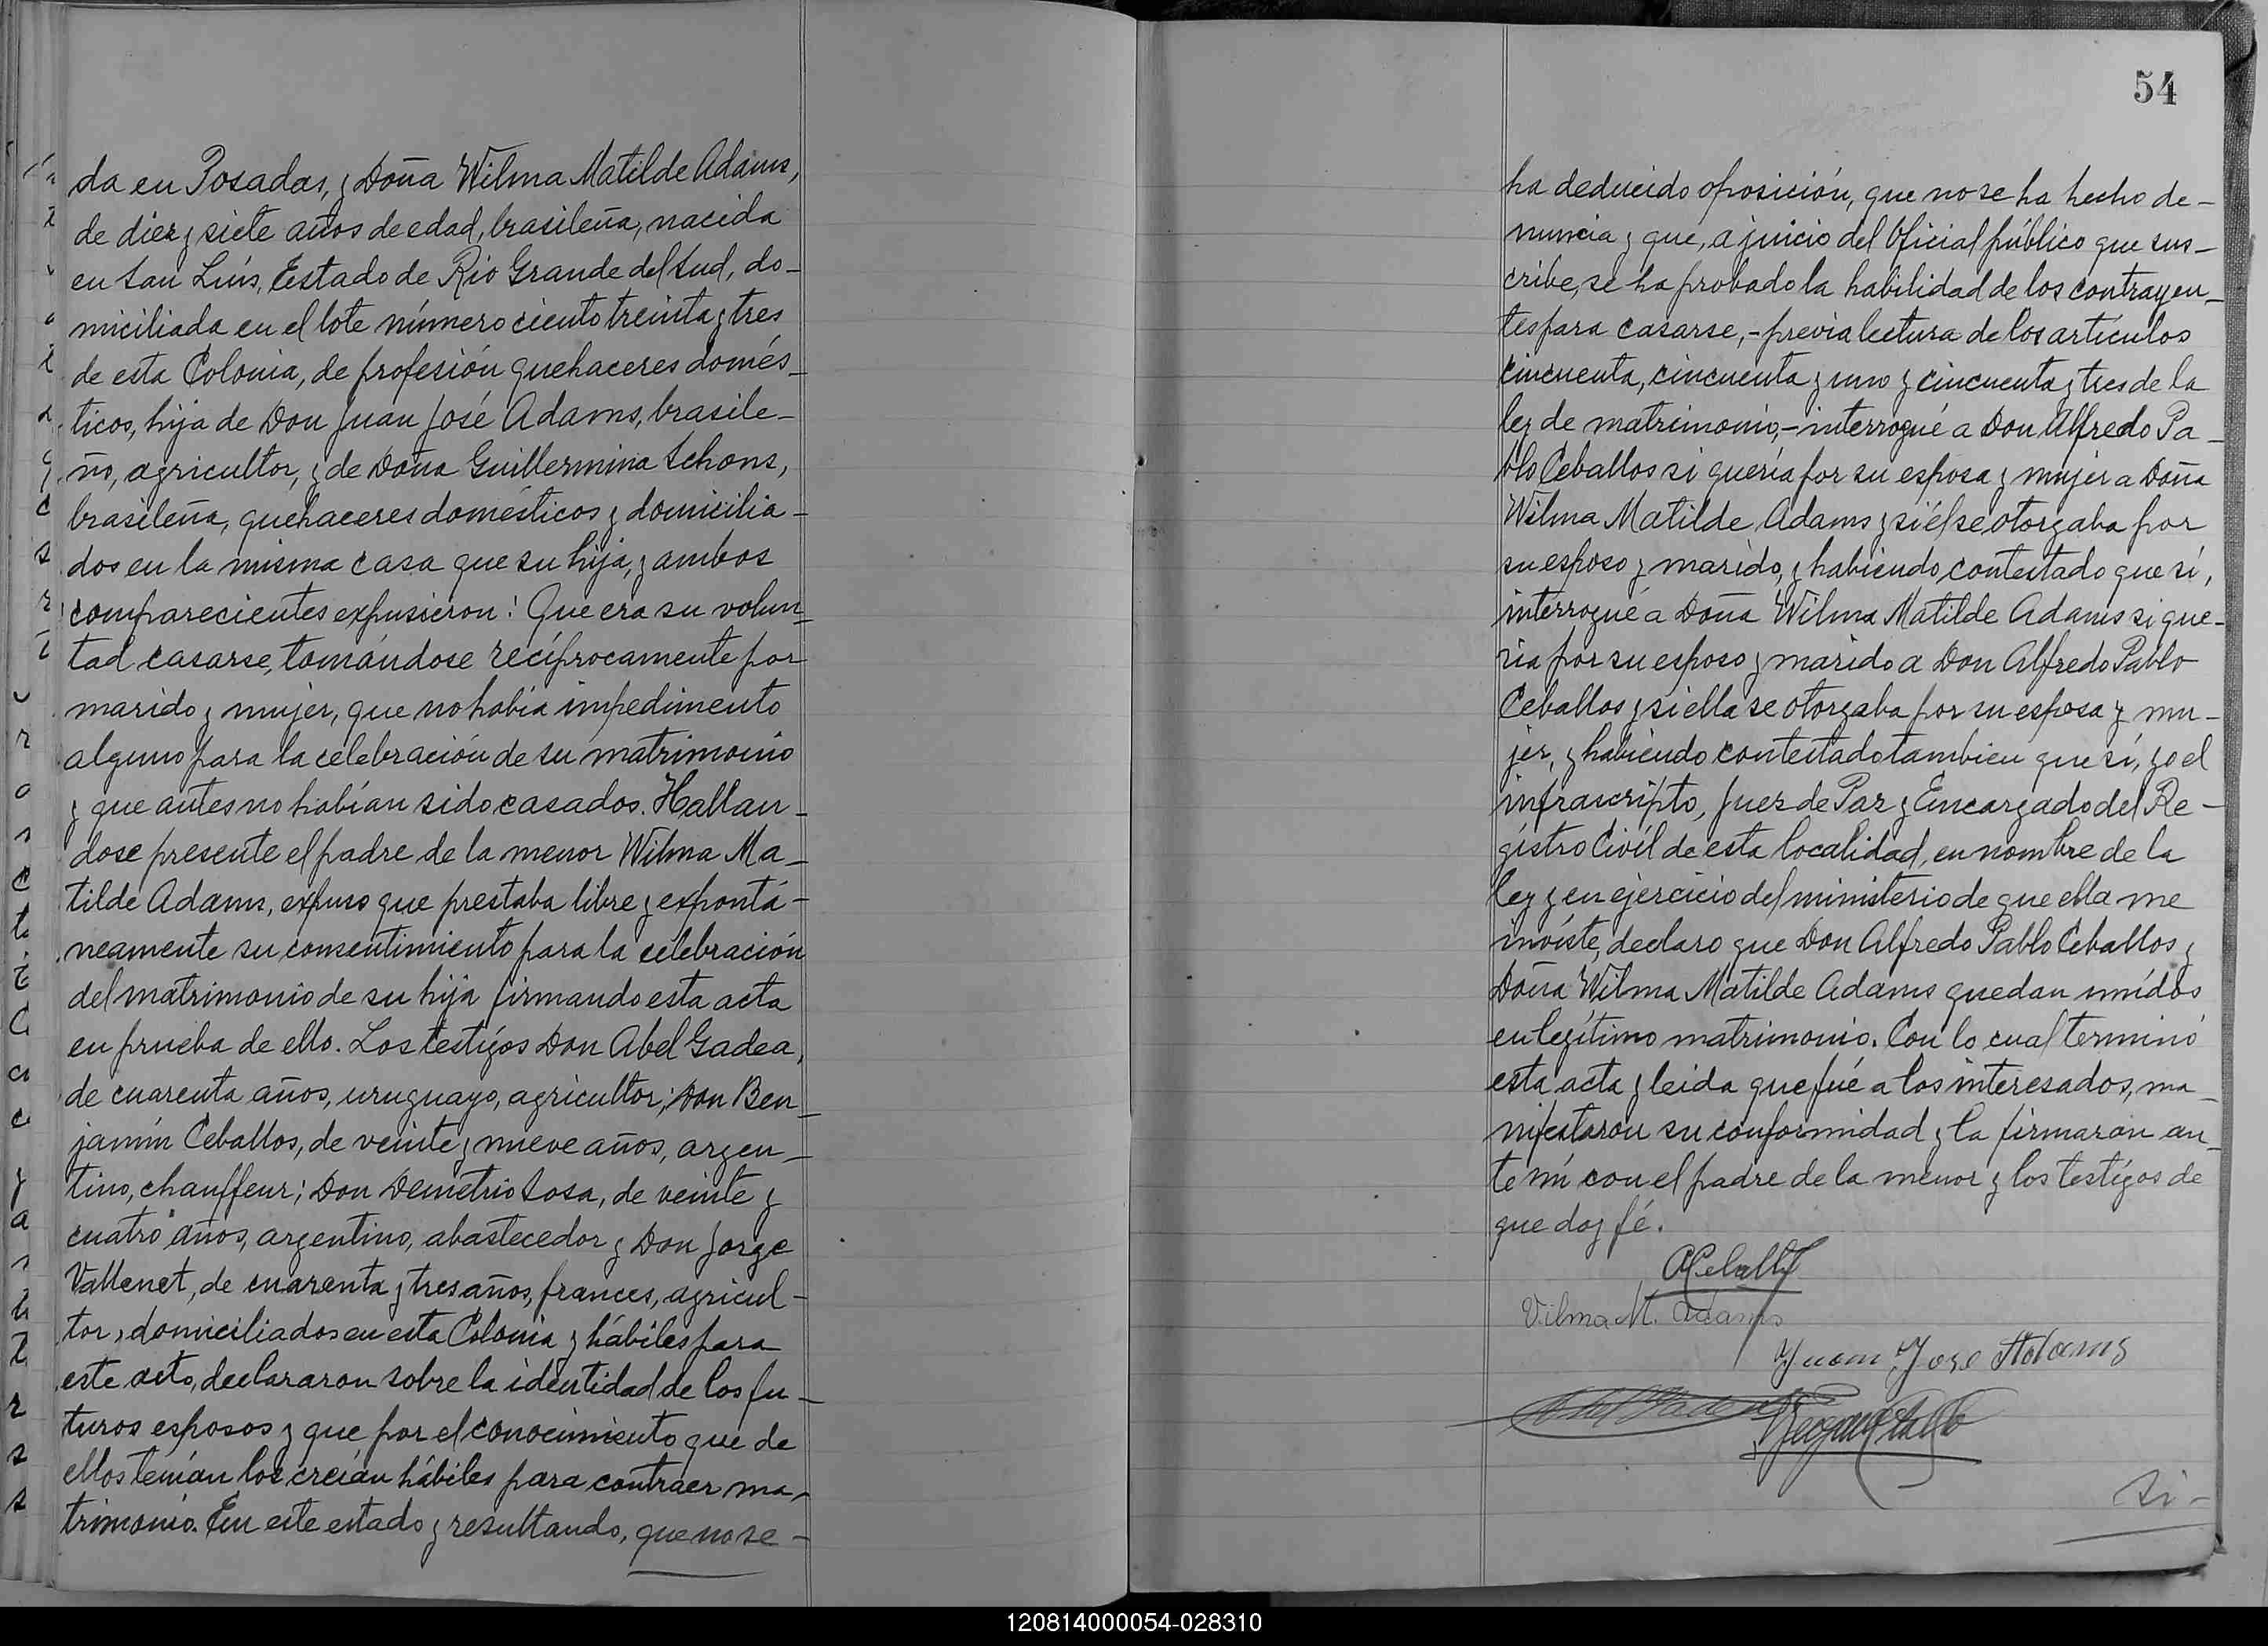 da en Posadas, y Doña Wilma Matilde Adams,
de diez y siete años de edad, brasileña, nacida
en San Luís, Estado de Rio Grande del Sud, do-
miciliada en el lote número ciento treinta y tres
de esta Colonia, de profesión quehaceres domés-
ticos, hija de Don Juan José Adams, brasile-
ño, agricultor, y de Doña Guillermina Schons,
brasileña, quehaceres domésticos y domicilia-
dos en la misma casa que su hija, y ambos
comparecientes expusieron: Que era su volun-
tad casarse, tomándose recíprocamente por
marido y mujer, que no había impedimento
alguno para la celebración de su matrimonio
y que antes no habían sido casados. Hallan-
dose presente el padre de la menor Wilma Ma-
tilde Adams, expuso que prestaba libre y expontá-
neamente su consentimiento para la celebración
del matrimonio de su hija firmando esta acta
en prueba de ello. Los testigos Don Abel Gadea,
de cuarenta años, uruguayo, agricultor; Don Ben-
jamín Ceballos, de veinte y nueve años, argen-
tino, chauffeur; Don Demetrio Sosa, de veinte y
cuatro años, argentino, abastecedor y Don Jorge
Vallenet, de cuarenta y tres años, frances, agricul-
tor, domiciliados en esta Colonia y hábiles para
este acto, declararon sobre la identidad de los fu-
turos esposos y que por el conocimiento que de
ellos tenían los creían hábiles para contraer ma-
trimonio. En este estado y resultando, que no se-
54
ha deducido oposición, que no se ha hecho de-
nuncia y que, a juicio del Oficial público que sus-
cribe, se ha probado la habilidad de los contrayen-
tes para casarse,- previa lectura de los artículos
cincuenta, cincuenta y uno y cincuenta y tres de la
ley de matrimonio,- interrogué a Don Alfredo Pa-
blo Ceballos si quería por su esposa y mujer a Doña
Wilma Matilde Adams y si él se otorgaba por
su esposo y marido, y habiendo contestado que sí,
interrogué a Doña Wilma Matilde Adams si que-
ría por su esposo y marido a Don Alfredo Pablo
Ceballos y si ella se otorgaba por su esposa y mu-
jer, y habiendo contestado tambien que sí, yo el
infrascripto, Juez de Paz y Encargado del Re-
gistro Civil de esta localidad, en nombre de la
ley y en ejercicio del ministerio de que ella me
inviste, declaro que Don Alfredo Pablo Ceballos y
Doña Wilma Matilde Adams quedan unidos
en legítimo matrimonio. Con lo cual terminó
esta acta y leida que fué a los interesados, ma-
nifestaron su conformidad y la firmaron an-
te mí con el padre de la menor y los testigos de
que doy fé.
Vilma M. Adams
Juan Jose Adams
Abel Gadea
Si-
120814000054-028310